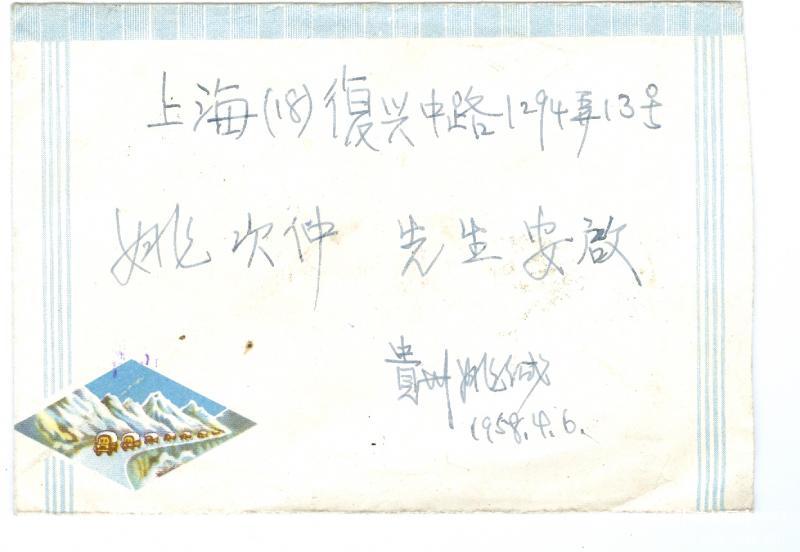 上海(18)復兴中路1294弄13号
姚次仲 先生安啟
貴州姚缄
1958.4.6.